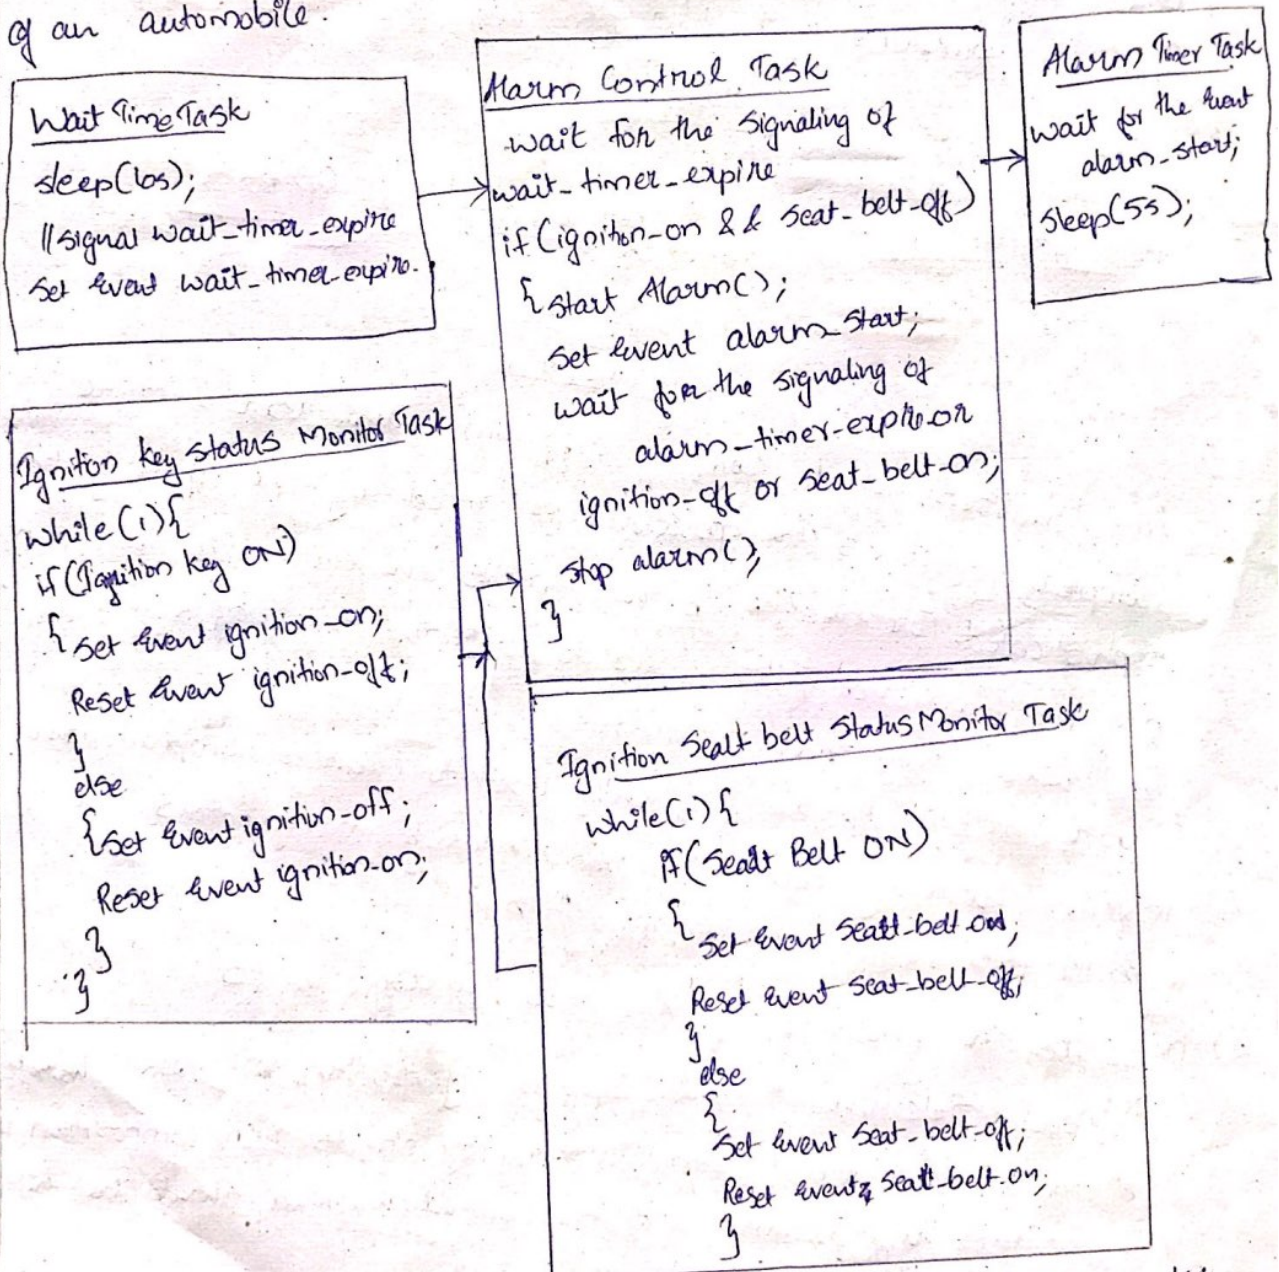 of an automobile.
Wait Time Task
sleep(10s);
//signal wait_timer_expire
Set Event wait_timer_expire.
Alarm Control Task
wait for the signaling of
wait_timer_expire
if (ignition_on && seat_belt_off)
{ Start Alarm();
Set Event alarm_start;
wait for the signaling of
alarm_timer_expire or
ignition_off or seat_belt_on;
stop alarm();
}
Alarm Timer Task
wait for the Event
alarm_start;
sleep(5s);
Ignition key status Monitor Task
while(1){
if(Ignition key ON)
{ Set Event ignition_on;
Reset Event ignition_off;
}
else
{Set Event ignition_off;
Reset Event ignition_on;
}
}
Ignition Sealt belt Status Monitor Task
while(1){
if(Seat Belt ON)
{
Set Event Seat_belt_on;
Reset Event Seat_belt_off;
}
else
{
Set Event Seat_belt_off;
Reset Event Seat_belt_on;
}